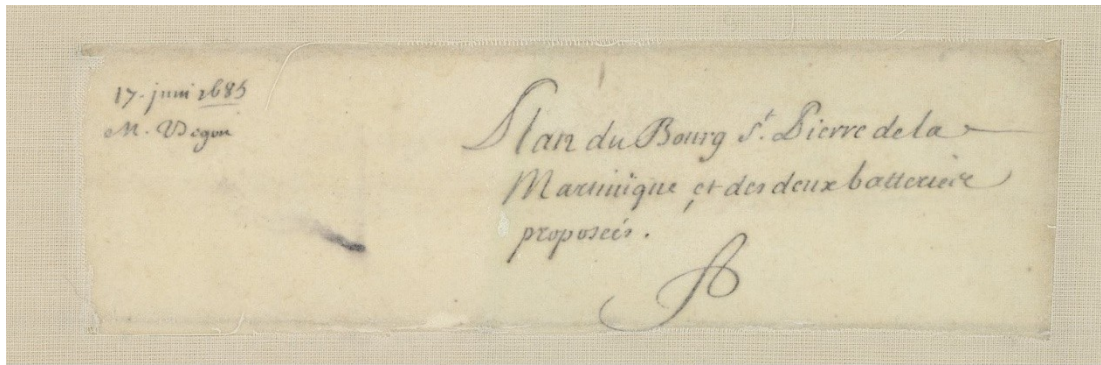 17. juin 1685
M. Begon
Plan du Bourg S.t Pierre de la
Martinique et des deux batteries
proposées.